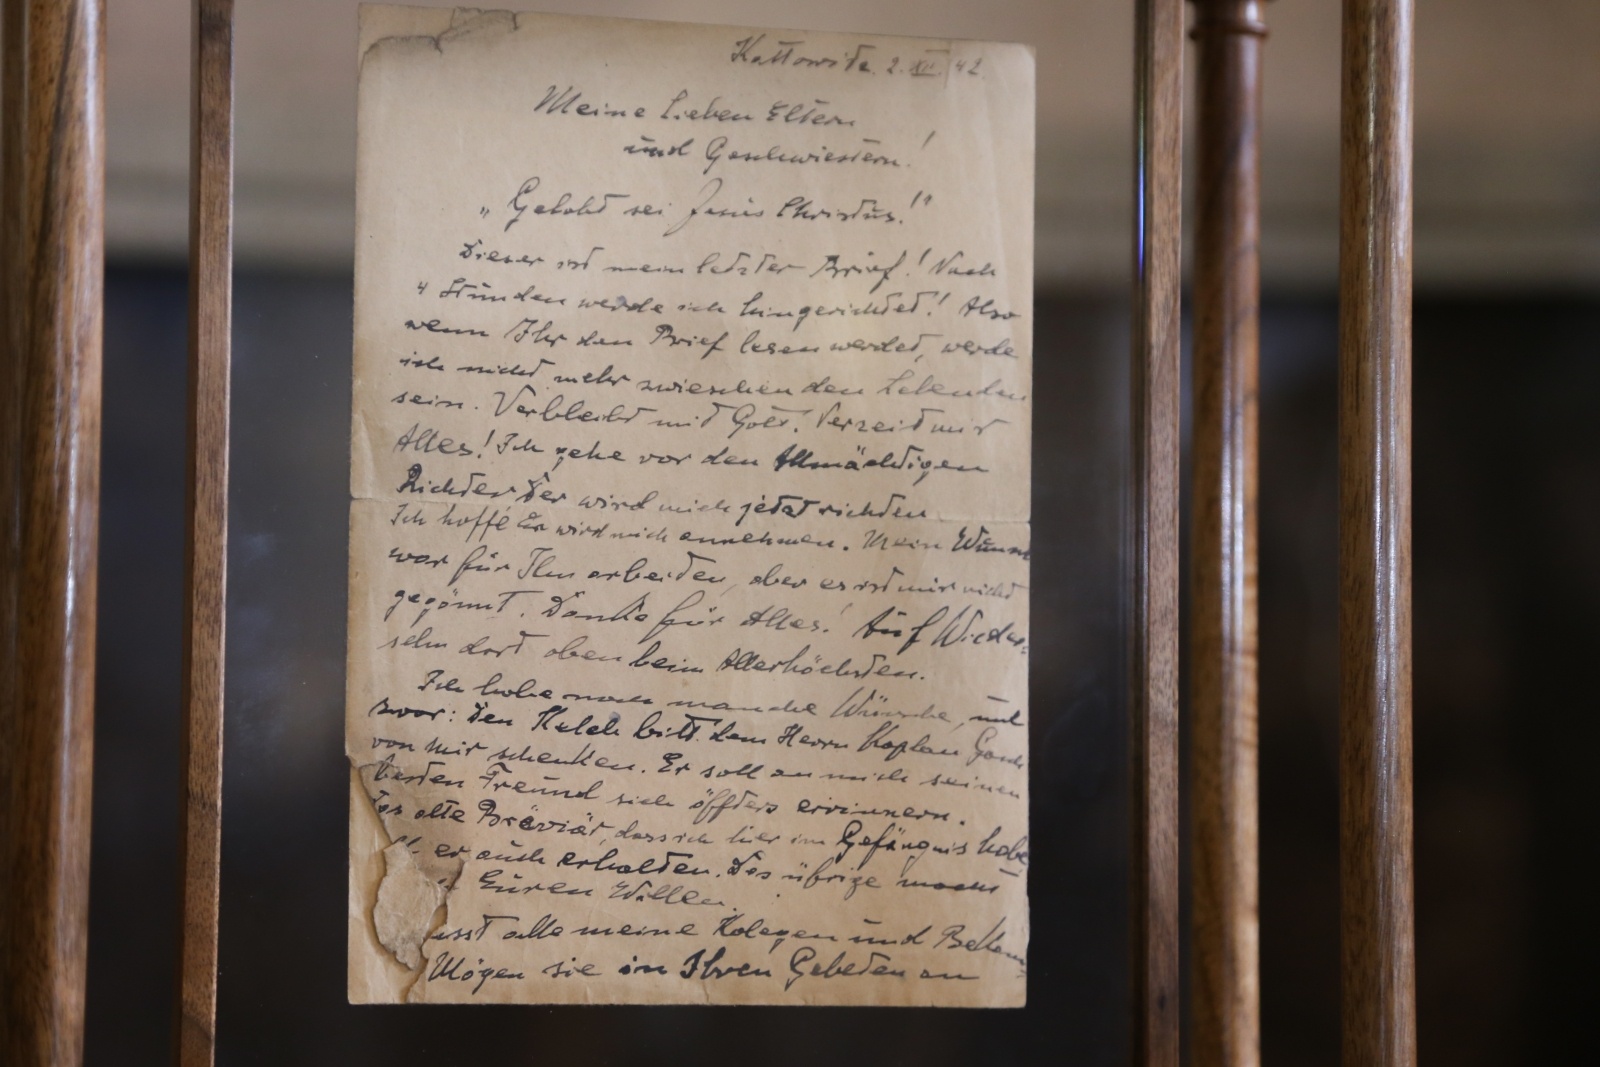 Kattowitz. 2. XII. 42.
Meine lieben Eltern
und Geschwiestern!
„Gelobt sei Jesus Christus!"
Dieser ist mein letzter Brief! Nach
4 Stunden werde ich hingerichtet! Also
wenn Ihr den Brief lesen werdet, werde
ich nicht mehr zwieschen den Lebenden
sein. Verbleibt mit Gott! Verzeit mir
Alles! Ich gehe vor den Allmächtigen
Richter Der wird mich jetzt richten
Ich hoffe Er wird mich annehmen. Mein Wunsch
war für Ihn arbeiten, aber es ist mir nicht
gegönnt. Danke für Alles! Auf Wieder-
sehn dort oben beim Allerhöchsten.
Ich habe noch manche Wünsche, und
zwar: Den Kelch bitt. dem Herrn Kaplan
von mir schenken. Er soll an mich seinen
besten Freund sich öffters erinnern.
Das alte Breviär, dass ich hier im Gefängnis habe
er auch erhalten. Das übrige macht
Euren Willen.
alle meine Kolegen und
Mögen sie in Ihren Gebeten an